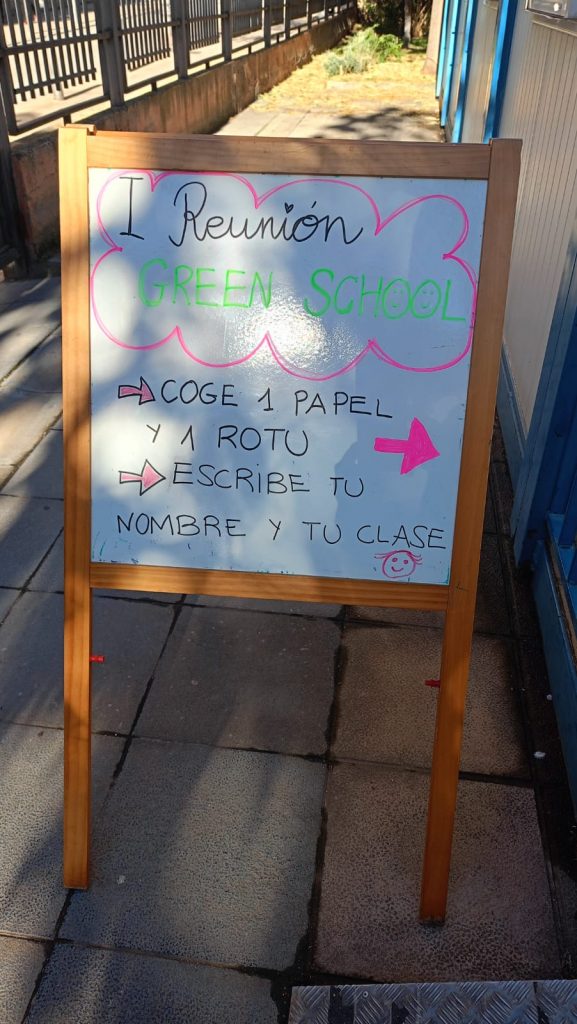 I Reunión
GREEN SCHOOL
COGE 1 PAPEL
Y 1 ROTU
ESCRIBE TU
NOMBRE Y TU CLASE